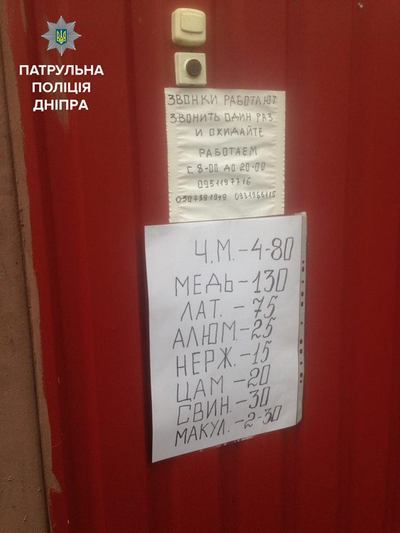 ПАТРУЛЬНА
ПОЛІЦІЯ
ДНІПРА
ЗВОНКИ РАБОТАЮТ
ЗВОНИТЬ ОДИН РАЗ
И ОЖИДАЙТЕ
РАБОТАЕМ
С 8-00 ДО 20-00
0951197716
Ч.М.-4-80
МЕДЬ-130
ЛАТ.-75
АЛЮМ.-25
НЕРЖ.-15
ЦАМ-20
СВИН.-30
МАКУЛ.-2-30